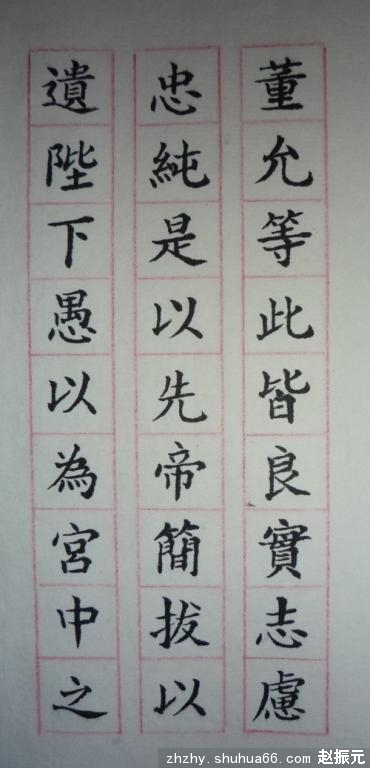 董允等此皆良實志慮
忠純是以先帝簡拔以
遺陛下愚以為宮中之
zhzhy.shuhua66.com 赵振元